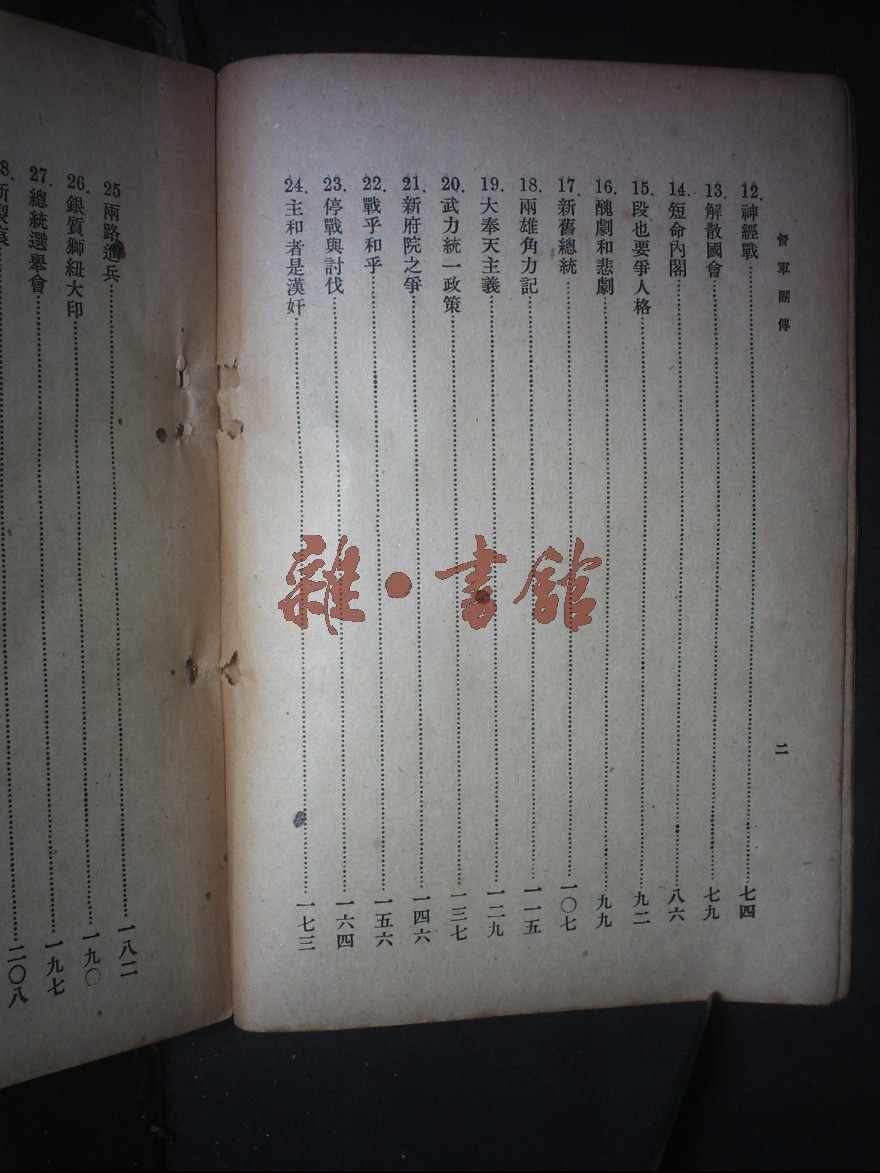 督軍團傳
二
12. 神經戰……七四
13. 解散國會……七九
14. 短命內閣……八六
15. 段也要爭人格……九二
16. 醜劇和悲劇……九九
17. 新舊總統……一〇七
18. 兩雄角力記……一一五
19. 大奉天主義……一二九
20. 武力統一政策……一三七
21. 新府院之爭……一四六
22. 戰乎和乎……一五六
23. 停戰與討伐……一六四
24. 主和者是漢奸……一七三
25 兩路進兵……一八二
26. 銀質獅紐大印……一九〇
27. 總統選舉會……一九七
8. 新裂痕……二〇八
雜·書館